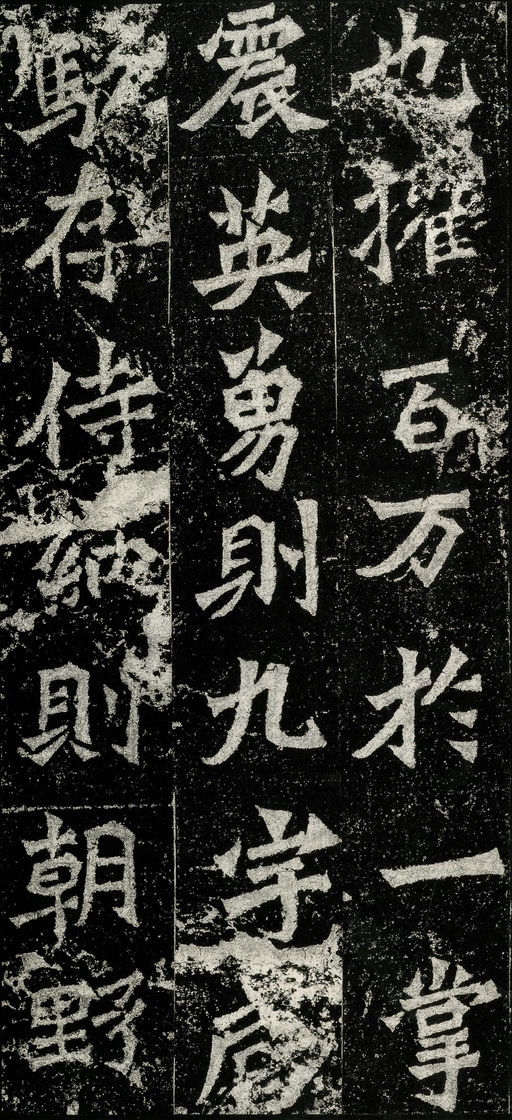 也摧百万於一掌
震英勇則九宇咸
駭存侍納則朝野